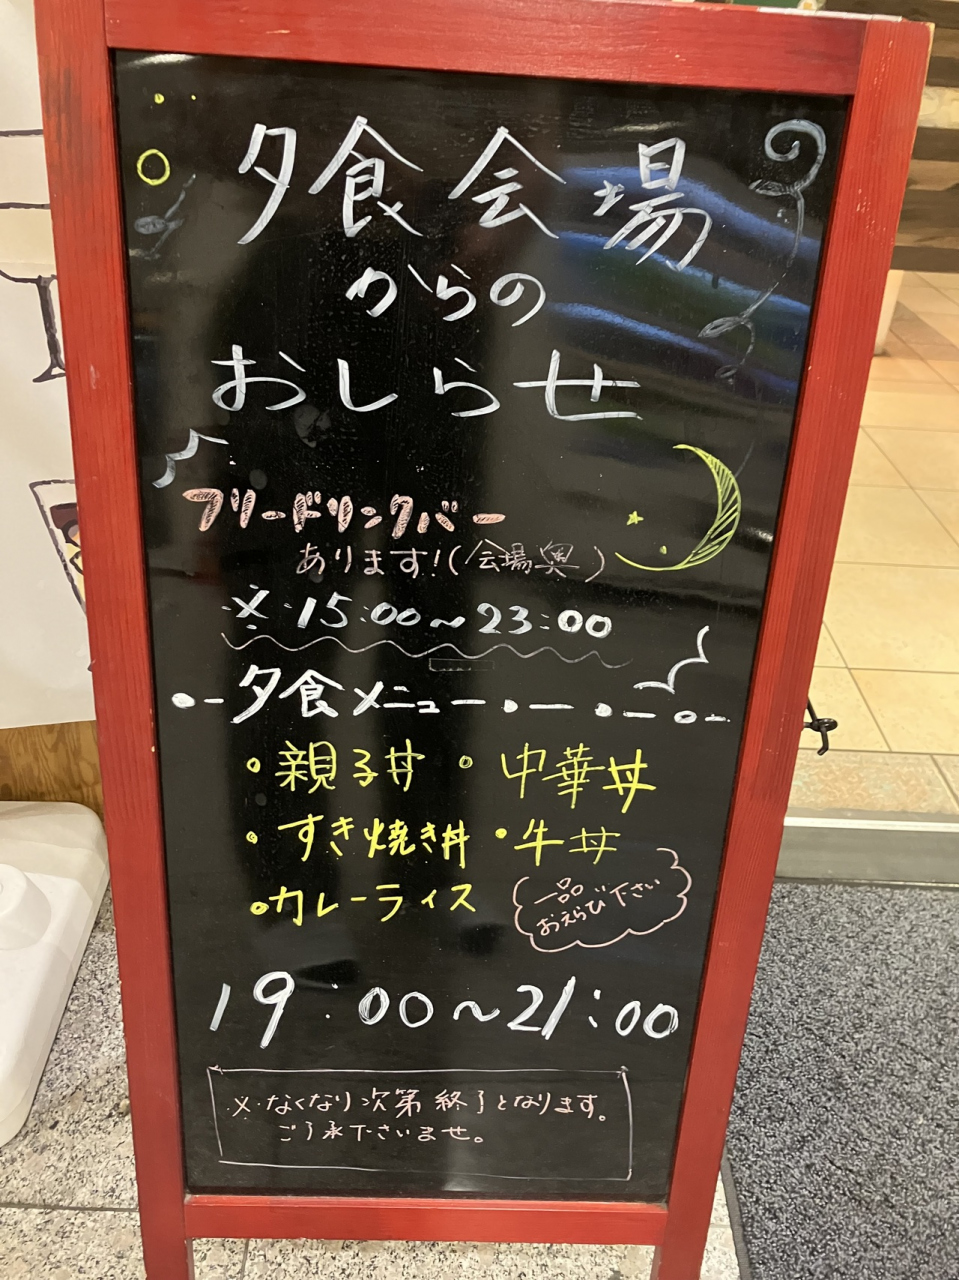 夕食会場
からの
おしらせ
フリードリンクバー
あります!(会場奥)
※15:00~23:00
夕食メニュー
・親子丼 ・中華丼
・すき焼き丼 ・牛丼
・カレーライス
一品
おえらび下さい
19:00~21:00
※なくなり次第終了となります。
ご了承下さいませ。